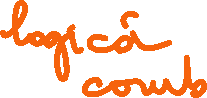 logică
comb